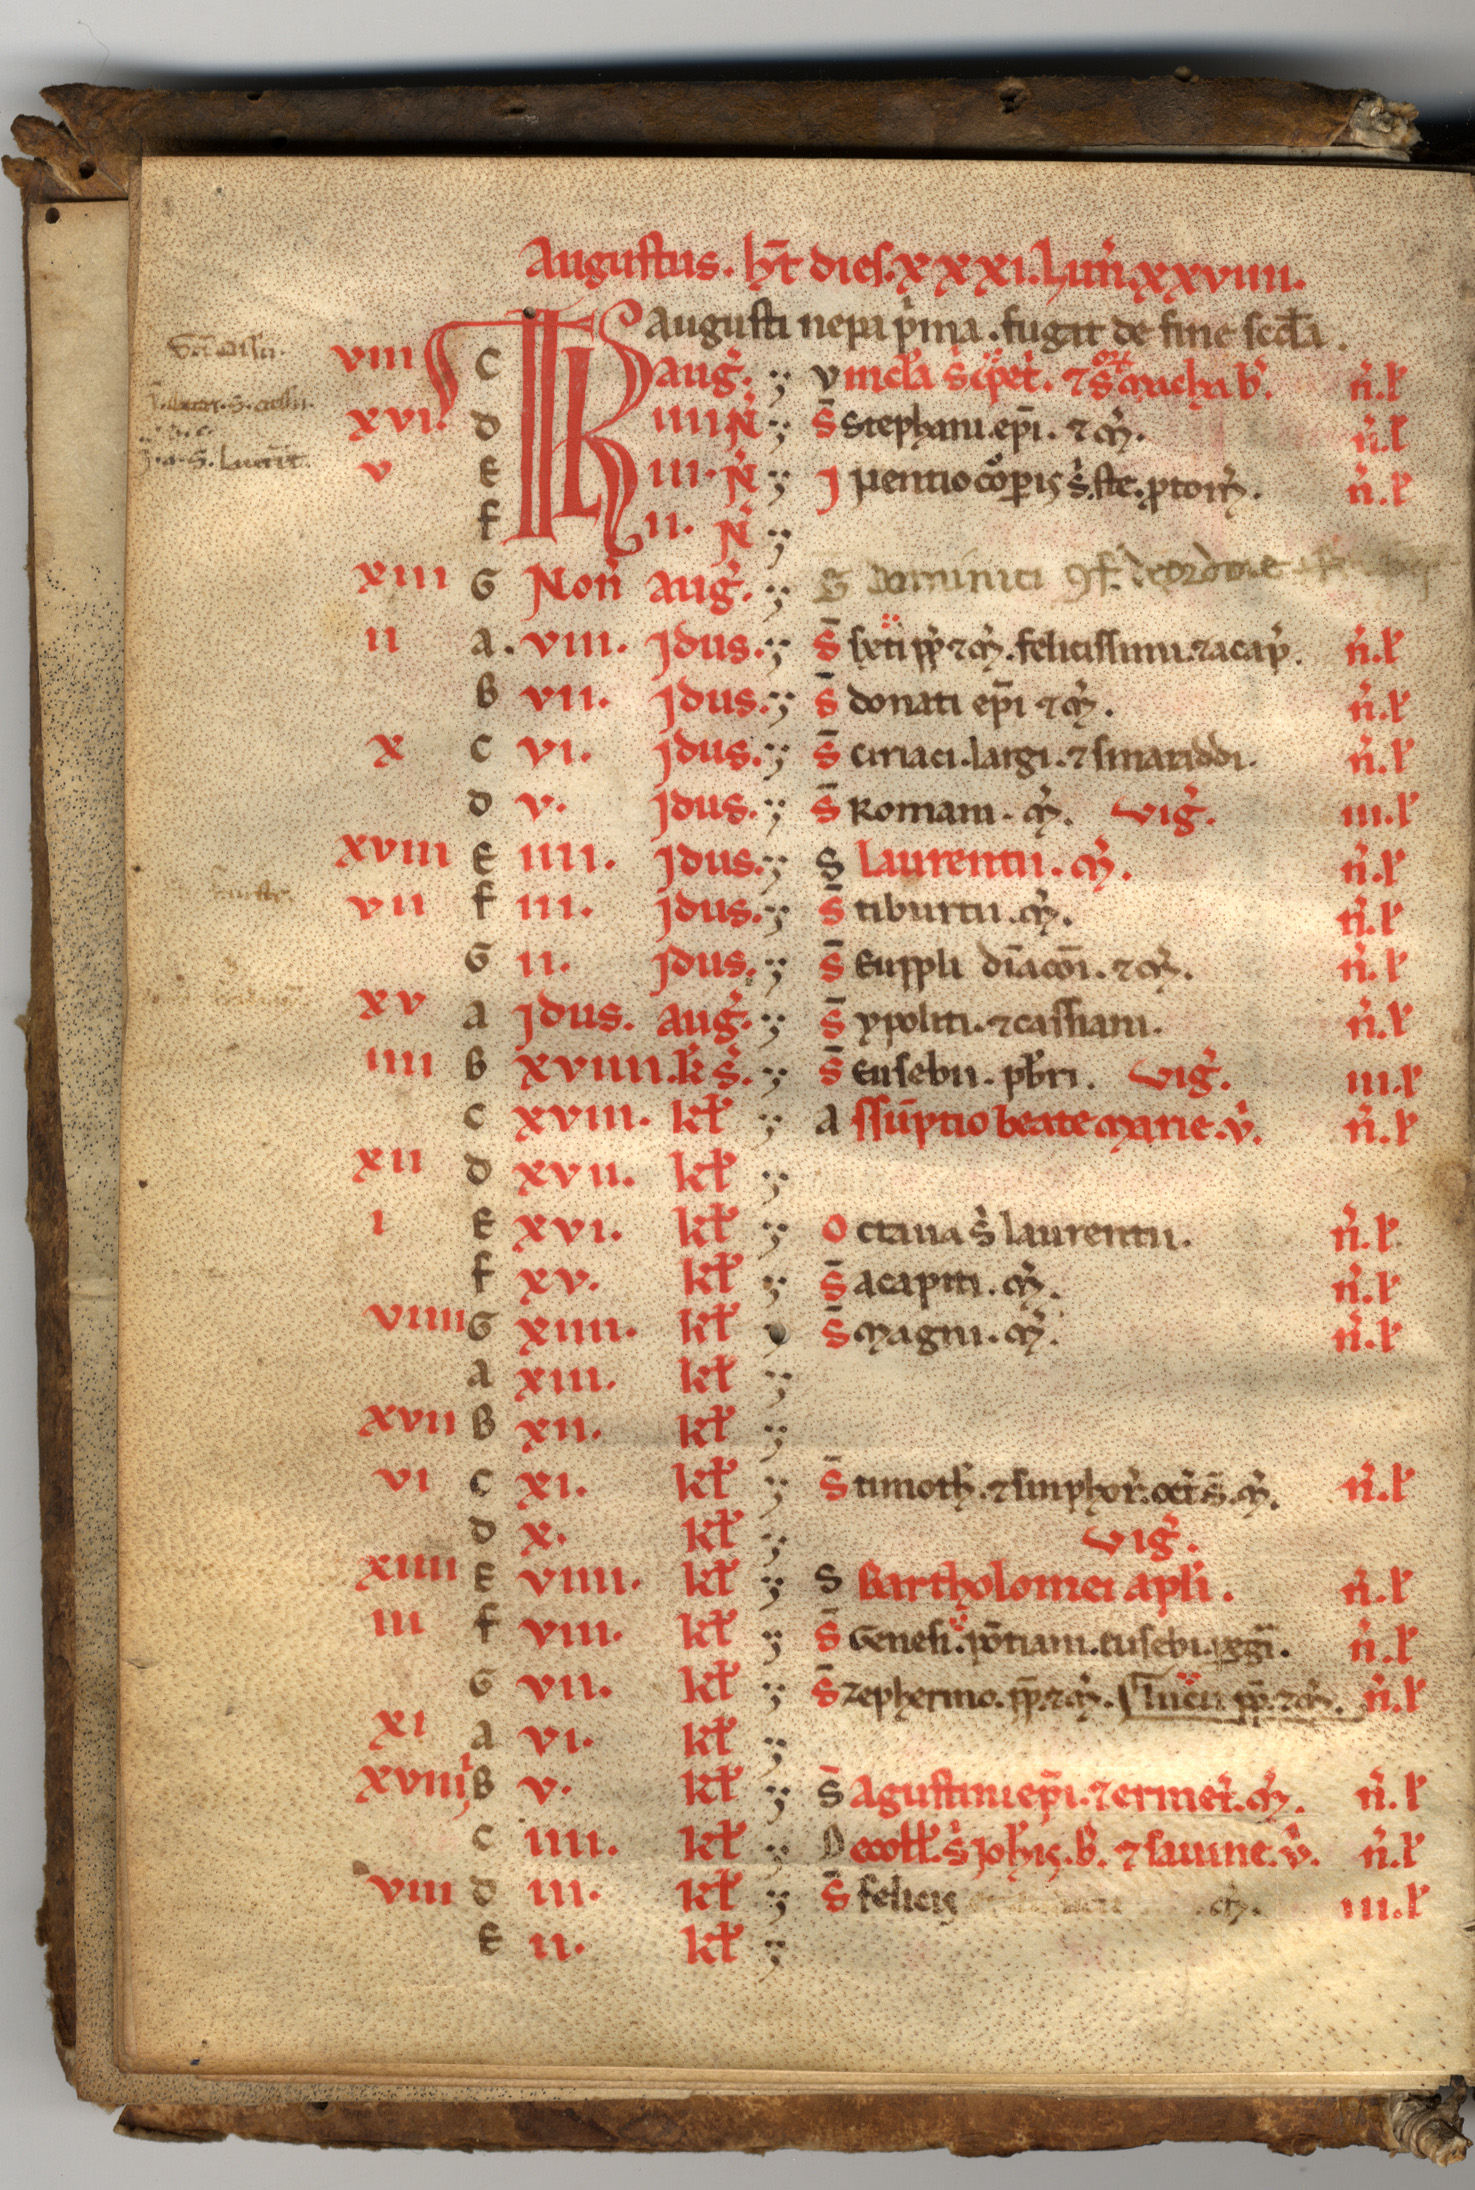 Augustus. hт̄ dies. xxxi. lun̄. xxviiii.
KL Augusti nepa p̓ma. fugit de fine scd̄a.
viii c aug̓. ; vincl̓a s̓c̓i pet̓. ⁊ s̓ or̄ machab̓. n̓.l̓
xvi. d iiii N̓ ; S̄ Stephani. ep̄i. ⁊ m̓. n̓.l̓
v E iii. N̓ ; Juentio co᷒ꝑis s̓. ste. ꝓtom̓. n̓.l̓
f ii. N̓ ;
xiii G Non̓ aug̓. ; S̄ dominici ꝯf. de ordine
ii a. viii. Jdus. ; S̄ sixti pp̄ ⁊ m̓. felicissimi. ⁊ acap̓. n̓.l̓
B vii. Jdus. ; S̄ donati ep̄i ⁊ m̓. n̓.l̓
x c vi. Jdus. ; S̄ ciriaci. largi. ⁊ smariddi. n̓.l̓
d v. Jdus. ; S̄ Romani. m̓. vig̓. iii.l̓
xviii E iiii. Jdus. ; S laurentii. m̓. n̓.l̓
vii f iii. Jdus. ; S̄ tiburtii. m̓. n̓.l̓
G ii. Jdus. ; S̄ Euppli dīacōi. ⁊ m̓. n̓.l̓
xv a Jdus. aug̓. ; S̄ ypoliti. ⁊ cassiani. n̓.l̓
iiii B xviiii. k̓ s̓. ; S̄ Eusebii. pb̓ri. vig̓. iii.l̓
c xviii. kl̓ ; Assūptio beate marie. v̓. n̓.l̓
xii d xvii. kl̓ ;
i E xvi. kl̓ ; Octaua s̓ laurentii. n̓.l̓
f xv. kl̓ ; S̄ acapiti. m̓. n̓.l̓
viiii G xiiii. kl̓ ; S̄ magni. m̓. n̓.l̓
a xiii. kl̓ ;
xvii B xii. kl̓ ;
vi c xi. kl̓ ; S̄ timoth̓. ⁊ sinphor̓. oct̓ s̄. m̓. n̓.l̓
d x. kl̓ ; vig̓.
xiiii E viiii. kl̓ ; S Bartholomei apl̓i. n̓.l̓
iii f viii. kl̓ ; S̄ Genesi. pōtiani. eusebi. n̓.l̓
G vii. kl̓ ; S̄ zepherino. pp̄. ⁊ m̓. pp̄. ⁊ m̓. n̓.l̓
xi a vi. kl̓ ;
xviiii B v. kl̓ ; S̄ Agustini ep̄i. ⁊ ermet̓. m̓. n̓.l̓
c iiii. kl̓ ; Decoll̓. s̓ Joh̓is. b̓. ⁊ sauine. v̓. n̓.l̓
viii d iii. kl̓ ; S̄ felicis m̓. iii.l̓
E ii. kl̓ ;